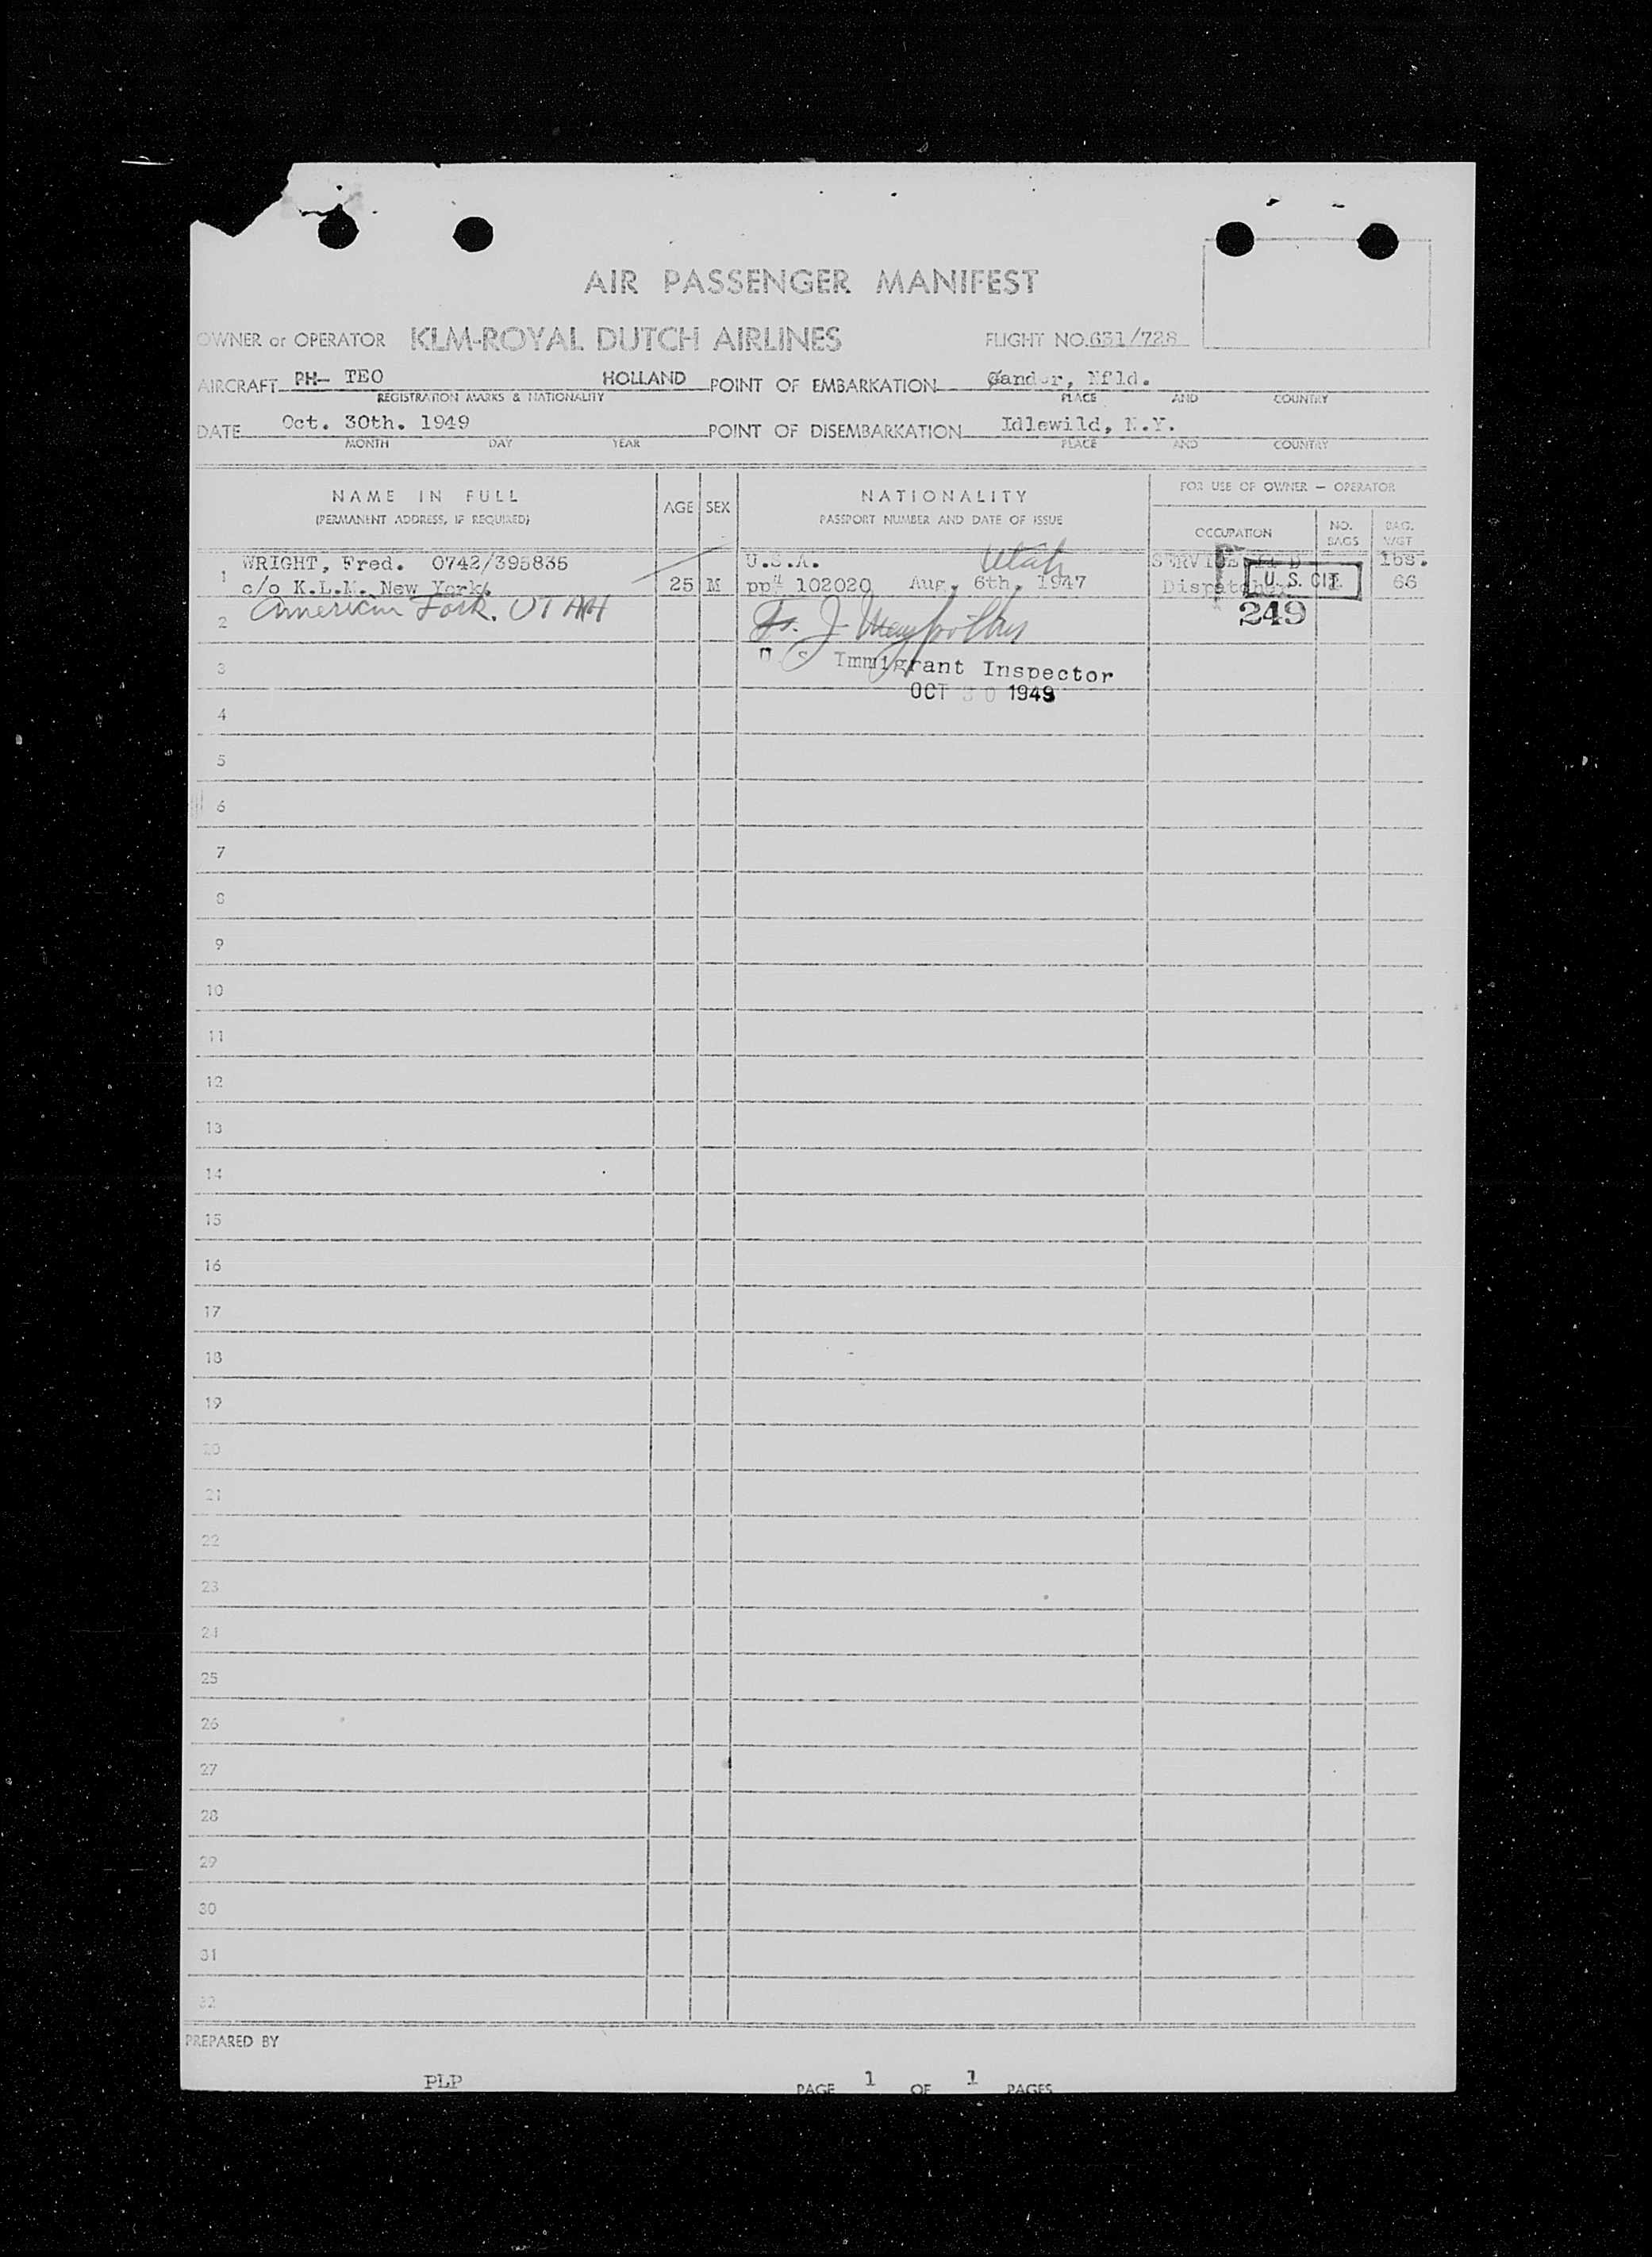 AIR PASSENGER MANIFEST
OWNER or OPERATOR KLM-ROYAL DUTCH AIRLINES FLIGHT NO. 631/728
AIRCRAFT PH- TEO HOLLAND POINT OF EMBARKATION Gander, Nfld.
REGISTRATION MARKS & NATIONALITY PLACE AND COUNTRY
DATE Oct. 30th. 1949 POINT OF DISEMBARKATION Idlewild, N.Y.
MONTH DAY YEAR PLACE AND COUNTRY
NAME IN FULL
(PERMANENT ADDRESS, IF REQUIRED)
AGE SEX
NATIONALITY
PASSPORT NUMBER AND DATE OF ISSUE
FOR USE OF OWNER — OPERATOR
OCCUPATION
NO. BAGS
BAG. WGT
1 WRIGHT, Fred. 0742/395835 U.S.A. Utah lbs.
c/o K.L.M. New York. 25 M pp# 102020 Aug. 6th. 1947 U. S. CIT. 66
2 American Fork. UTAH 249
3 Immigrant Inspector
OCT 30 1949
4
5
6
7
8
9
10
11
12
13
14
15
16
17
18
19
20
21
22
23
24
25
26
27
28
29
30
31
32
PREPARED BY
PLP PAGE 1 OF 1 PAGES